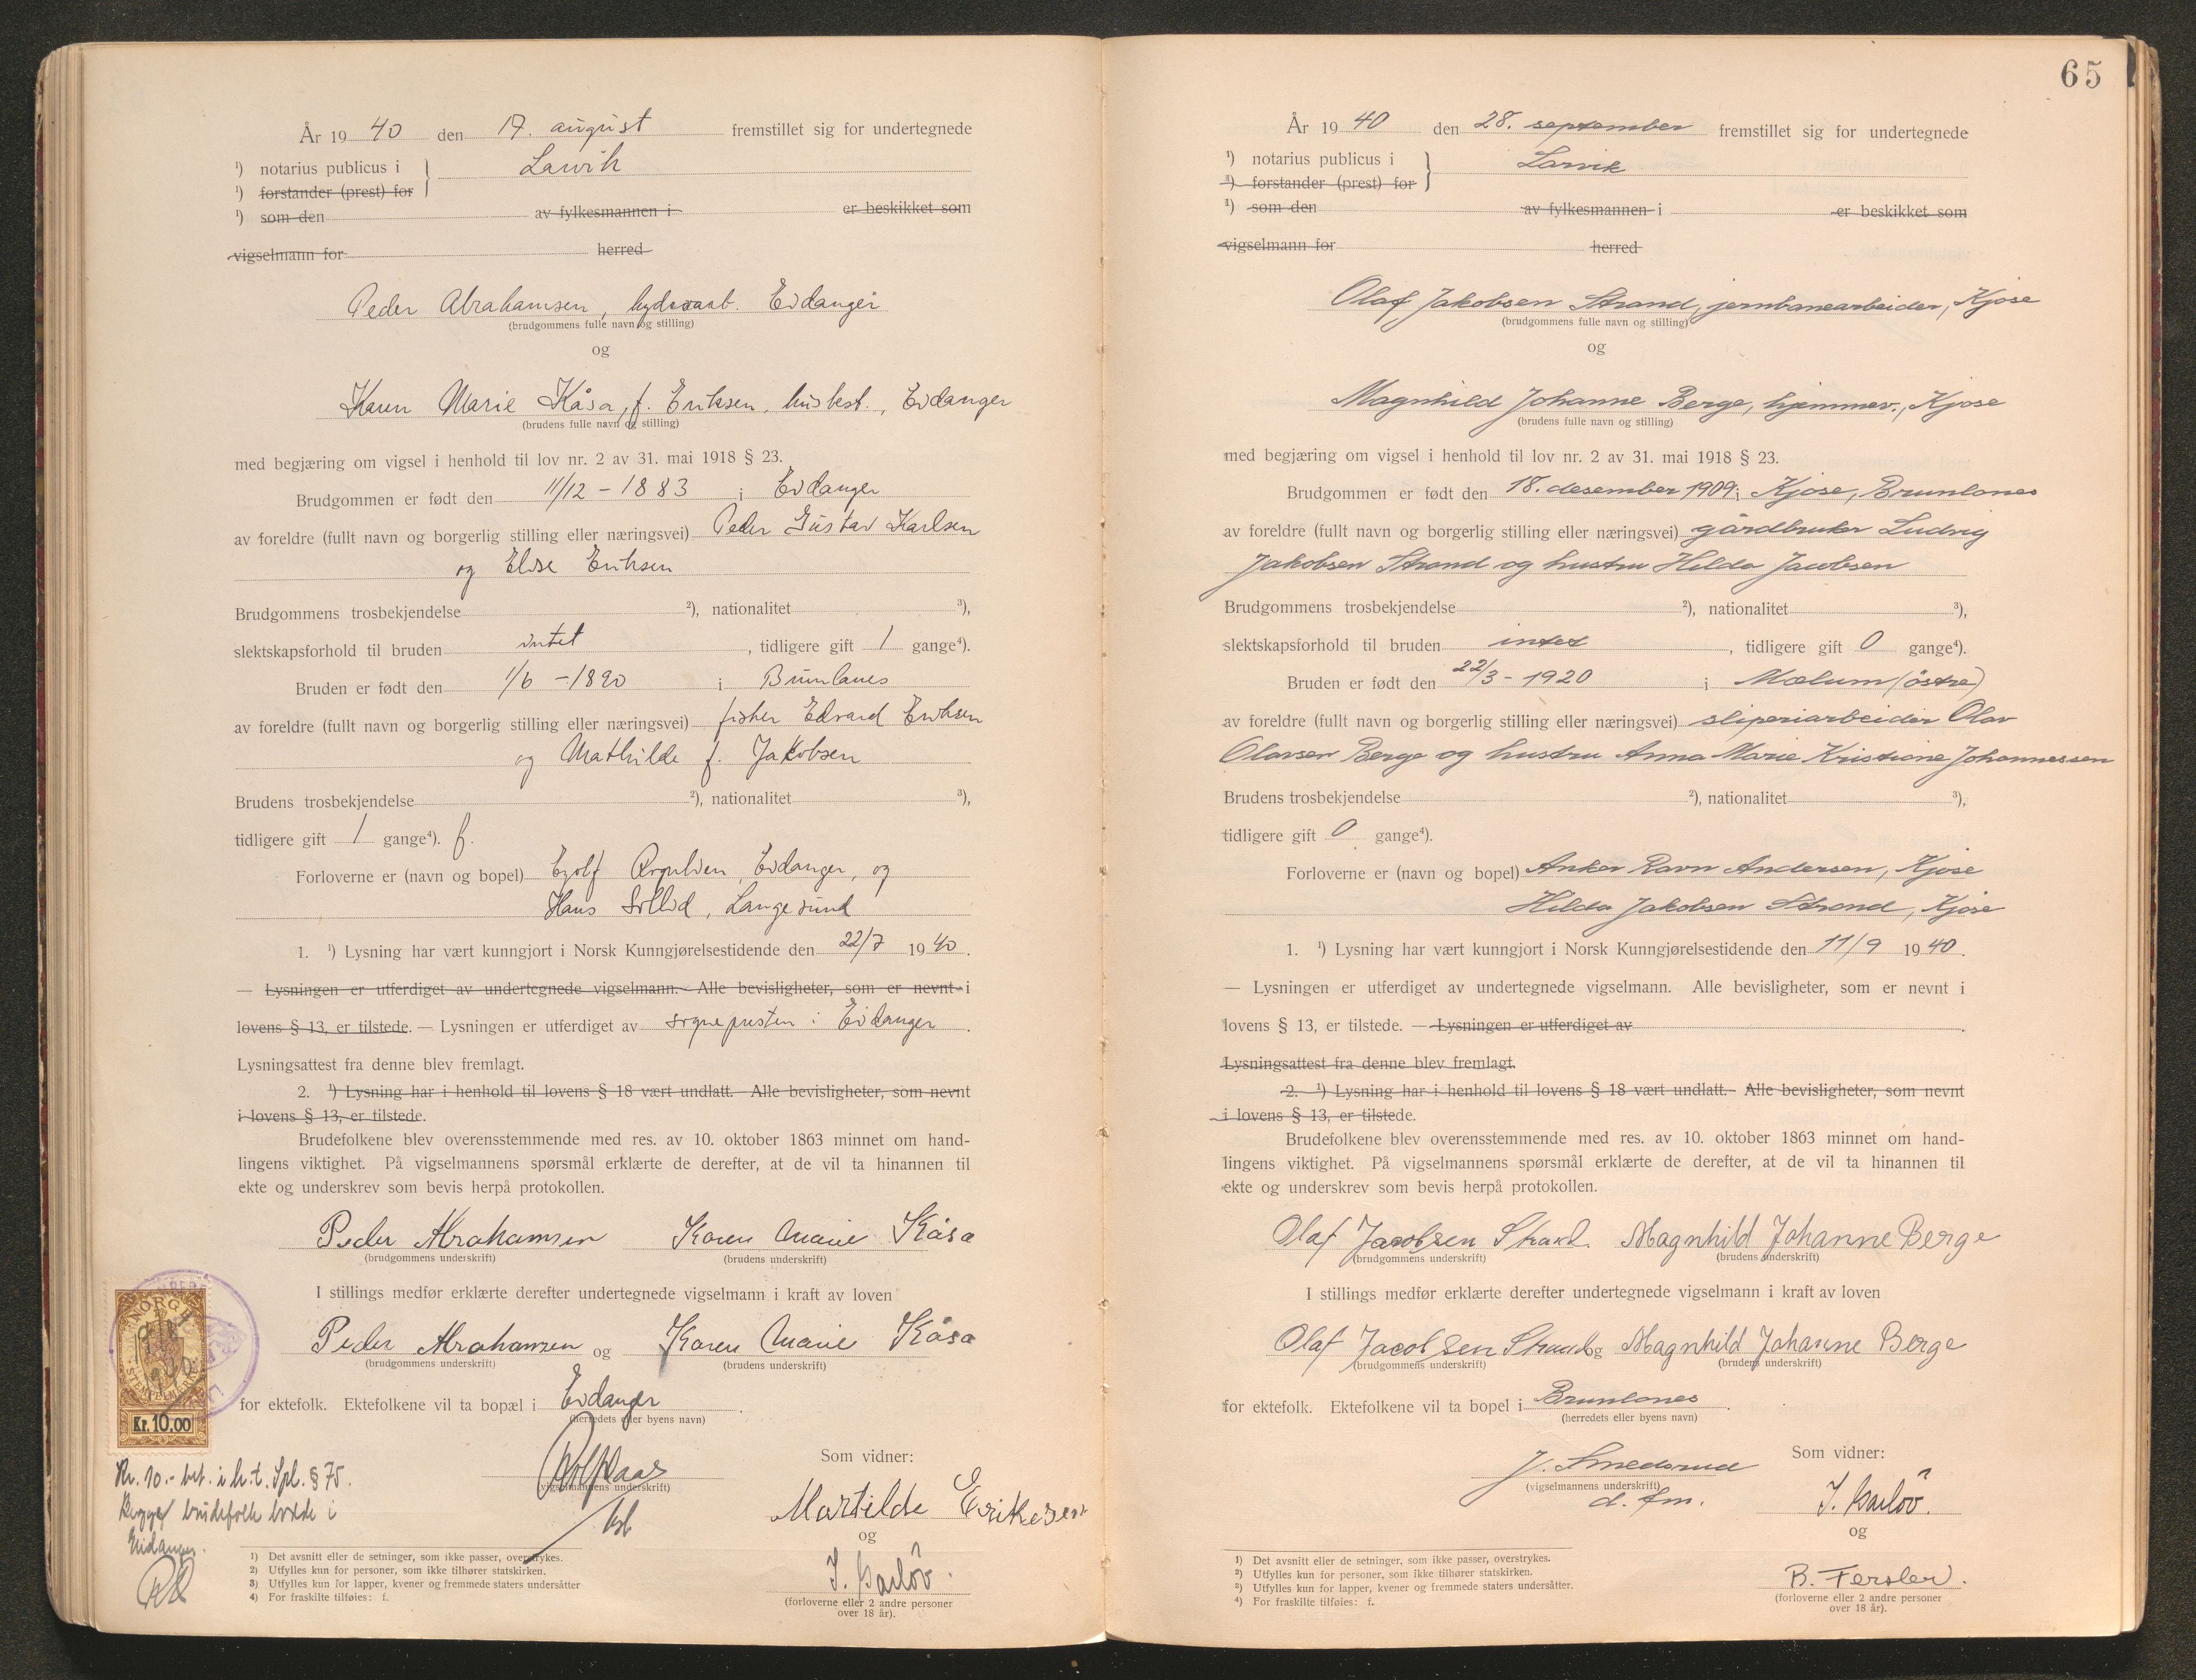 År 19 40 den 17. august fremstillet sig for undertegnede
¹) notarius publicus i } Larvik
¹) forstander (prest) for
¹) som den av fylkesmannen i er beskikket som
vigselmann for herred
Peder Abrahamsen, hydroarb. Eidanger
(brudgommens fulle navn og stilling)
og
Karen Marie Kåsa, f. Eriksen, husbest., Eidanger
(brudens fulle navn og stilling)
med begjæring om vigsel i henhold til lov nr. 2 av 31. mai 1918 § 23.
Brudgommen er født den 11/12 - 1883 i Eidanger
av foreldre (fullt navn og borgerlig stilling eller næringsvei) Peder Gustav Karlsen
og Elise Eriksen
Brudgommens trosbekjendelse ²), nationalitet ³),
slektskapsforhold til bruden intet , tidligere gift 1 gange⁴).
Bruden er født den 1/6 - 1890 i Brunlanes
av foreldre (fullt navn og borgerlig stilling eller næringsvei) fisker Edvard Eriksen
og Mathilde f. Jakobsen
Brudens trosbekjendelse ²), nationalitet ³),
tidligere gift 1 gange⁴). f.
Forloverne er (navn og bopel) Eyolf Eidanger, og
Hans Sollid, Langesund
1. ¹) Lysning har vært kunngjort i Norsk Kunngjørelsestidende den 22/7 19 40.
— Lysningen er utferdiget av undertegnede vigselmann. Alle bevisligheter, som er nevnt i
lovens § 13, er tilstede. — Lysningen er utferdiget av sognepresten i Eidanger.
Lysningsattest fra denne blev fremlagt.
2. ¹) Lysning har i henhold til lovens § 18 vært undlatt. Alle bevisligheter, som nevnt
i lovens § 13, er tilstede.
Brudefolkene blev overensstemmende med res. av 10. oktober 1863 minnet om hand-
lingens viktighet. På vigselmannens spørsmål erklærte de derefter, at de vil ta hinannen til
ekte og underskrev som bevis herpå protokollen.
Peder Abrahamsen Karen Marie Kåsa
(brudgommens underskrift) (brudens underskrift)
I stillings medfør erklærte derefter undertegnede vigselmann i kraft av loven
Peder Abrahamsen og Karen Marie Kåsa
(brudgommens underskrift) (brudens underskrift)
for ektefolk. Ektefolkene vil ta bopæl i Eidanger.
(herredets eller byens navn)
Som vidner:
(vigselmannens underskrift)
Martilde Eriksen
og
I. Barlov.
(forloverne eller 2 andre personer
over 18 år).
NORGE
STEMPELMERKE
Kr. 10.00
Kr. 10.- bet. i h.t. Spl. § 75.
Begge brudefolk bodde i
Eidanger.
1) Det avsnitt eller de setninger, som ikke passer, overstrykes.
2) Utfylles kun for personer, som ikke tilhører statskirken.
3) Utfylles kun for lapper, kvener og fremmede staters undersåtter
4) For fraskilte tilføies: f.
65
År 19 40 den 28. september fremstillet sig for undertegnede
¹) notarius publicus i } Larvik
¹) forstander (prest) for
¹) som den av fylkesmannen i er beskikket som
vigselmann for herred
Olaf Jakobsen Strand, jernbanearbeider, Kjose
(brudgommens fulle navn og stilling)
og
Magnhild Johanne Berge, hjemmev., Kjose
(brudens fulle navn og stilling)
med begjæring om vigsel i henhold til lov nr. 2 av 31. mai 1918 § 23.
Brudgommen er født den 18. desember 1909 i Kjose, Brunlanes
av foreldre (fullt navn og borgerlig stilling eller næringsvei) gårdbruker Ludvig
Jakobsen Strand og hustru Hilda Jacobsen
Brudgommens trosbekjendelse ²), nationalitet ³),
slektskapsforhold til bruden intet , tidligere gift 0 gange⁴).
Bruden er født den 22/3 - 1920 i Mælum (østre)
av foreldre (fullt navn og borgerlig stilling eller næringsvei) sliperiarbeider Olav
Olavsen Berge og hustru Anna Marie Kristiane Johannessen
Brudens trosbekjendelse ²), nationalitet ³),
tidligere gift 0 gange⁴).
Forloverne er (navn og bopel) Anker Ravn Andersen, Kjose
Hilda Jakobsen Strand, Kjose
1. ¹) Lysning har vært kunngjort i Norsk Kunngjørelsestidende den 11/9 19 40.
— Lysningen er utferdiget av undertegnede vigselmann. Alle bevisligheter, som er nevnt i
lovens § 13, er tilstede. — Lysningen er utferdiget av .
Lysningsattest fra denne blev fremlagt.
2. ¹) Lysning har i henhold til lovens § 18 vært undlatt. Alle bevisligheter, som nevnt
i lovens § 13, er tilstede.
Brudefolkene blev overensstemmende med res. av 10. oktober 1863 minnet om hand-
lingens viktighet. På vigselmannens spørsmål erklærte de derefter, at de vil ta hinannen til
ekte og underskrev som bevis herpå protokollen.
Olaf Jacobsen Strand. Magnhild Johanne Berge
(brudgommens underskrift) (brudens underskrift)
I stillings medfør erklærte derefter undertegnede vigselmann i kraft av loven
Olaf Jacobsen Strand og Magnhild Johanne Berge
(brudgommens underskrift) (brudens underskrift)
for ektefolk. Ektefolkene vil ta bopel i Brunlanes.
(herredets eller byens navn)
Som vidner:
J. Smedsrud
(vigselmannens underskrift)
d. fm.
I. Barlov.
og
B. Fersler.
(forloverne eller 2 andre personer
over 18 år).
1) Det avsnitt eller de setninger, som ikke passer, overstrykes.
2) Utfylles kun for personer, som ikke tilhører statskirken.
3) Utfylles kun for lapper, kvener og fremmede staters undersåtter.
4) For fraskilte tilføies: f.